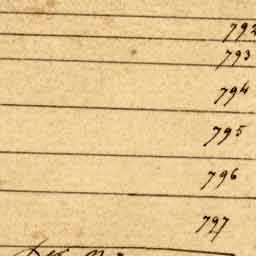 792
793
794
795
796
797